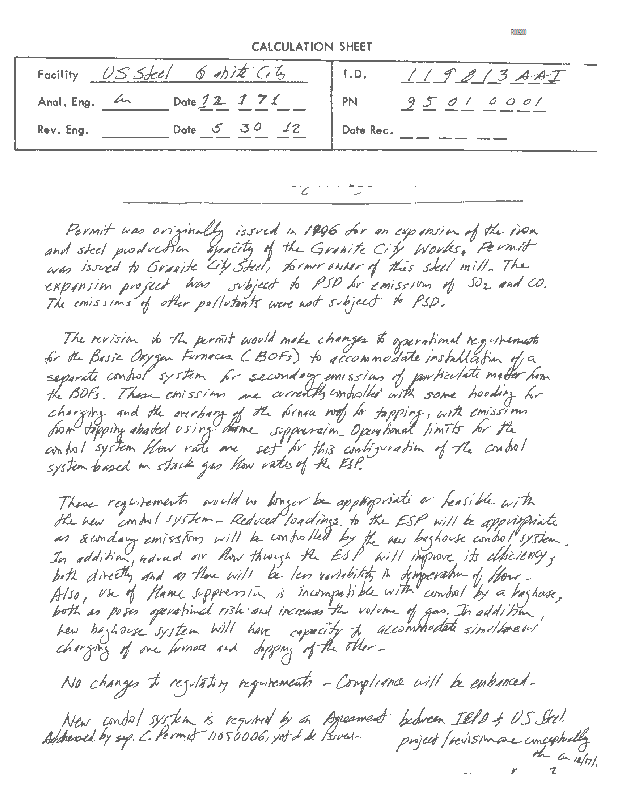 CALCULATION SHEET
Facility US Steel Granite City I.D. 119813AAI
Anal. Eng. Date 12 1 71 PN 9501 0001
Rev. Eng. Date 5 30 12 Date Rec.
Permit was originally issued in 1996 for an expansion of the iron
and steel production capacity of the Granite City Works. Permit
was issued to Granite City Steel, former owner of this steel mill. The
expansion project was subject to PSD for emissions of SO2 and CO.
The emissions of other pollutants were not subject to PSD.
The revision to the permit would make changes to operational requirements
for the Basic Oxygen Furnaces (BOFs) to accommodate installation of a
separate control system for secondary emissions of particulate matter from
the BOFs. These emissions are currently controlled with some hooding for
charging and the overhang of the furnace roof for tapping, with emissions
from tapping abated using flame suppression. Operational limits for the
control system flow rate are set for this configuration of the control
system based on stack gas flow rates of the ESP.
These requirements would no longer be appropriate or feasible with
the new control system - Reduced loadings to the ESP will be appropriate
as secondary emissions will be controlled by the new baghouse control system.
In addition, reduced air flow through the ESP will improve its efficiency,
both directly and as there will be less variability in temperature of flow.
Also, use of flame suppression is incompatible with control by a baghouse,
both as poses operational risk and increases the volume of gas. In addition,
new baghouse system will have capacity to accommodate simultaneous
charging of one furnace and tapping of the other -
No changes to regulatory requirements - Compliance will be enhanced -
New control system is required by an Agreement between IEPA & US Steel
Addressed by sep. C. Permit 11050006, yet to be issued - project/revision are conceptually